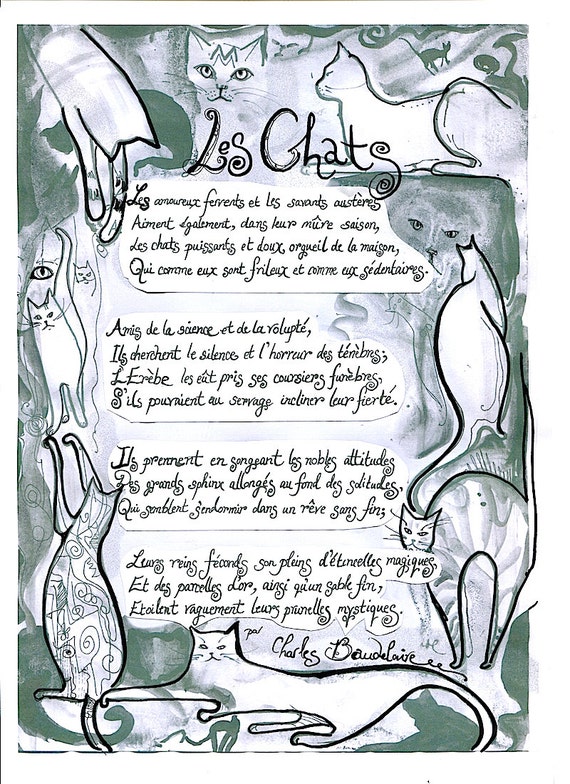 Les Chats
Les amoureux ferrents et les savants austères
Aiment également, dans leur mûre saison,
Les chats puissants et doux, orgueil de la maison,
Qui comme eux sont frileux et comme eux sédentaires.
Amis de la science et de la volupté,
Ils cherchent le silence et l'horreur des ténèbres;
L'Erèbe les eût pris ses coursiers funèbres,
S'ils pouvaient au servage incliner leur fierté.
Ils prennent en songeant les nobles attitudes
Des grands sphinx allongés au fond des solitudes,
Qui semblent s'endormir dans un rêve sans fin;
Leurs reins féconds son pleins d'étincelles magiques,
Et des parcelles d'or, ainsi qu'un sable fin,
Etoilent vaguement leurs prunelles mystiques.
par
Charles Baudelaire